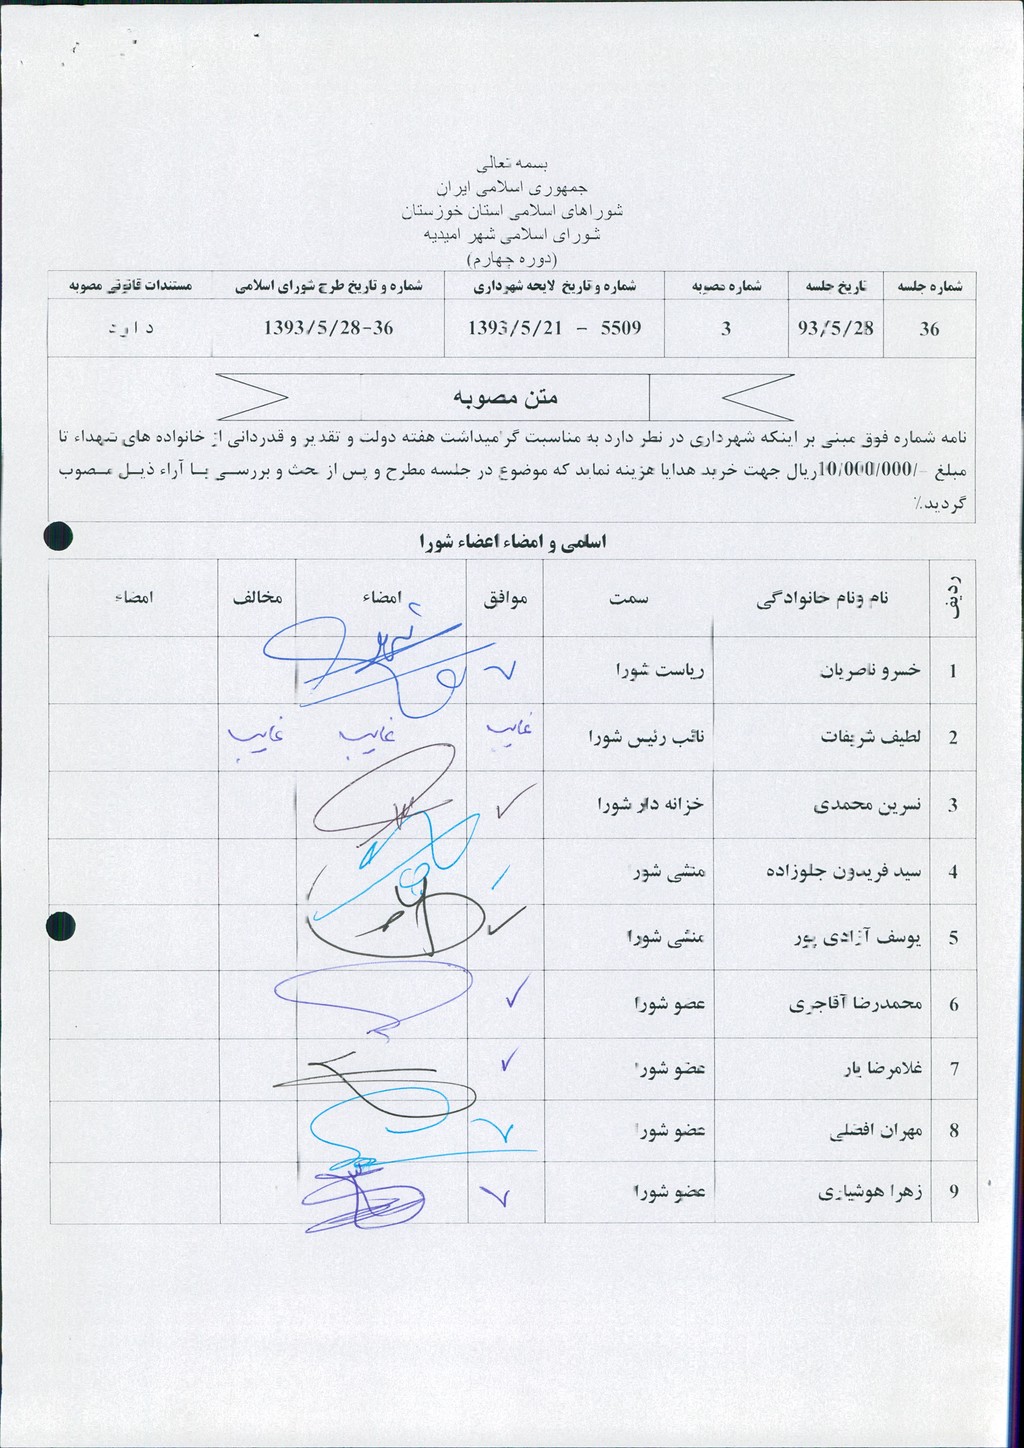 بسمه تعالی
جمهوری اسلامی ایران
شوراهای اسلامی استان خوزستان
شورای اسلامی شهر امیدیه
(دوره چهارم)
شماره جلسه تاریخ جلسه شماره مصوبه شماره و تاریخ لایحه شهرداری شماره و تاریخ طرح شورای اسلامی مستندات قانونی مصوبه
36 93/5/28 3 5509 - 1393/5/21 1393/5/28-36 دارد
متن مصوبه
نامه شماره فوق مبنی بر اینکه شهرداری در نظر دارد به مناسبت گرامیداشت هفته دولت و تقدیر و قدردانی از خانواده های شهداء تا
مبلغ -/10/000/000ریال جهت خرید هدایا هزینه نماید که موضوع در جلسه مطرح و پس از بحث و بررسی با آراء ذیل مصوب
گردید.٪
اسامی و امضاء اعضاء شورا
ردیف نام ونام خانوادگی سمت موافق امضاء مخالف امضاء
1 خسرو ناصریان ریاست شورا
2 لطیف شریفات نائب رئیس شورا غایب غایب غایب
3 نسرین محمدی خزانه دار شورا
4 سید فریدون جلوزاده منشی شور
5 یوسف آزادی پور منشی شورا
6 محمدرضا آقاجری عضو شورا
7 غلامرضا یار عضو شورا
8 مهران افضلی عضو شورا
9 زهرا هوشیاری عضو شورا